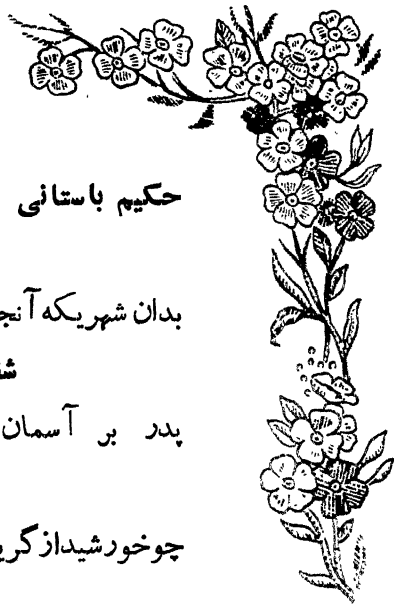 حکیم باستانی
بدان شهریکه آنجا
پدر بر آسمان
چوخورشیدازگری